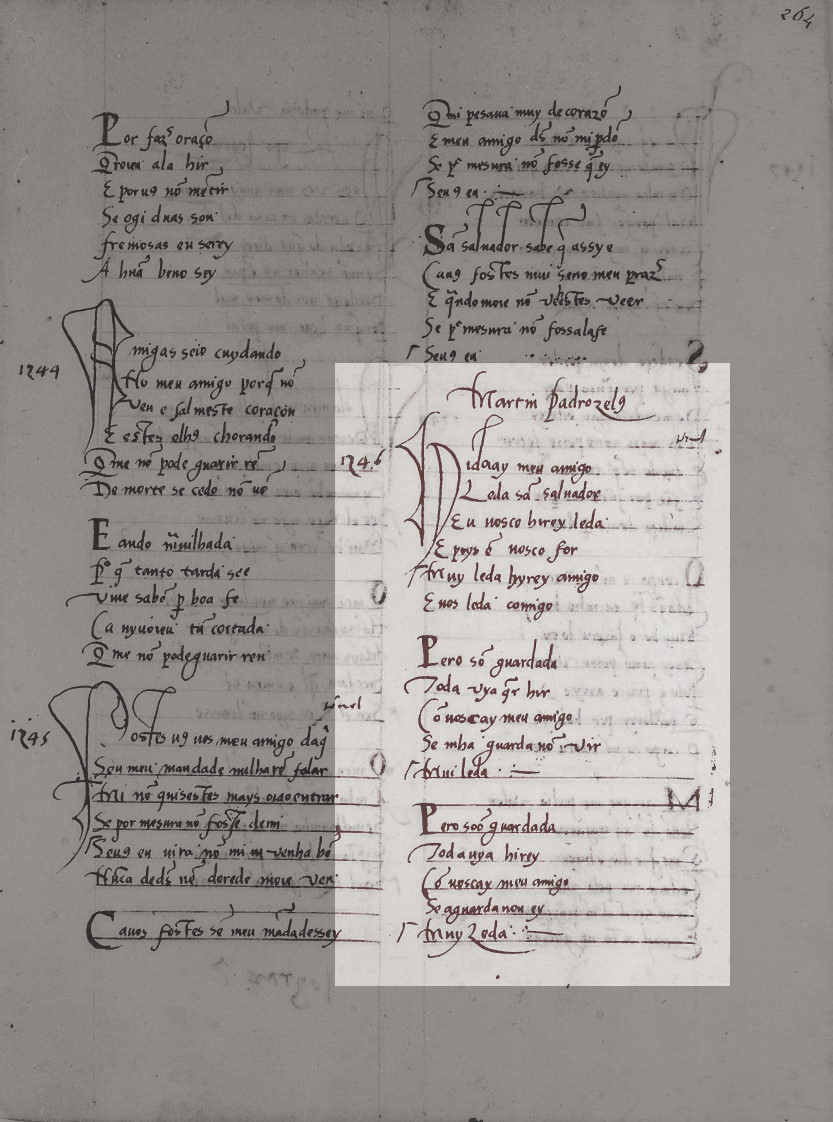 264
Por faz̃ oraçõ
Q̃rouea ala hir
E porug nõ mẽtir
Se ogi duas son
fremosas eu serey
A hnã beno sey
1244
Amigas seio cuydando
No meu amigo porq̃ nõ
Uen e sal meste coraçon
E estes olhg chorando
Q̃ me nõ pode guarir rẽ
De morte se cedo nõ uẽ
E ando mĩlhada
Pº q̃ tanto tarda see
uiue sabõ p boa fe
Ca nyuoieu tã coitada
Q̃ me nõ pode guarir ren
1245
Postes ug uos meu amigo daq̃
Sen meu mandade nulharẽ falar
Mi nõ quisestes mays
Se por mesura nõ foste demi
Seug eu uira nõ mi uenha bẽ
Nũca deds nẽ
Cauos fostes sẽ meu mãdadessey
Q̃mi pesaua muy de corazõ
E meu amigo ds nõ mi pdõ
Se pr mesura nõ fosse q̃ ey
Seug eu
Sã saluador sabe q̃ assy e
Caug fostes mui sẽno meu praz̃
E q̃ndo moie nõ veẽstes veer
Se pr mesura nõ fossalafe
Seug eu
Martin padrozelg
1246
Hidoay meu amigo
Leda sã saluador
Eu uosco hirey leda
E poys ẽ uosco for
Muy leda hyrey amigo
E uos leda comigo
Pero sõ guardada
Toda uya q̃r hir
Cõ uoscay meu amigo
Se mha guarda nõ vir
Mui leda
Pero soõ guardada
Toda uya hirey
Cõ uoscay meu amigo
Se aguarda non ey
Muy Leda